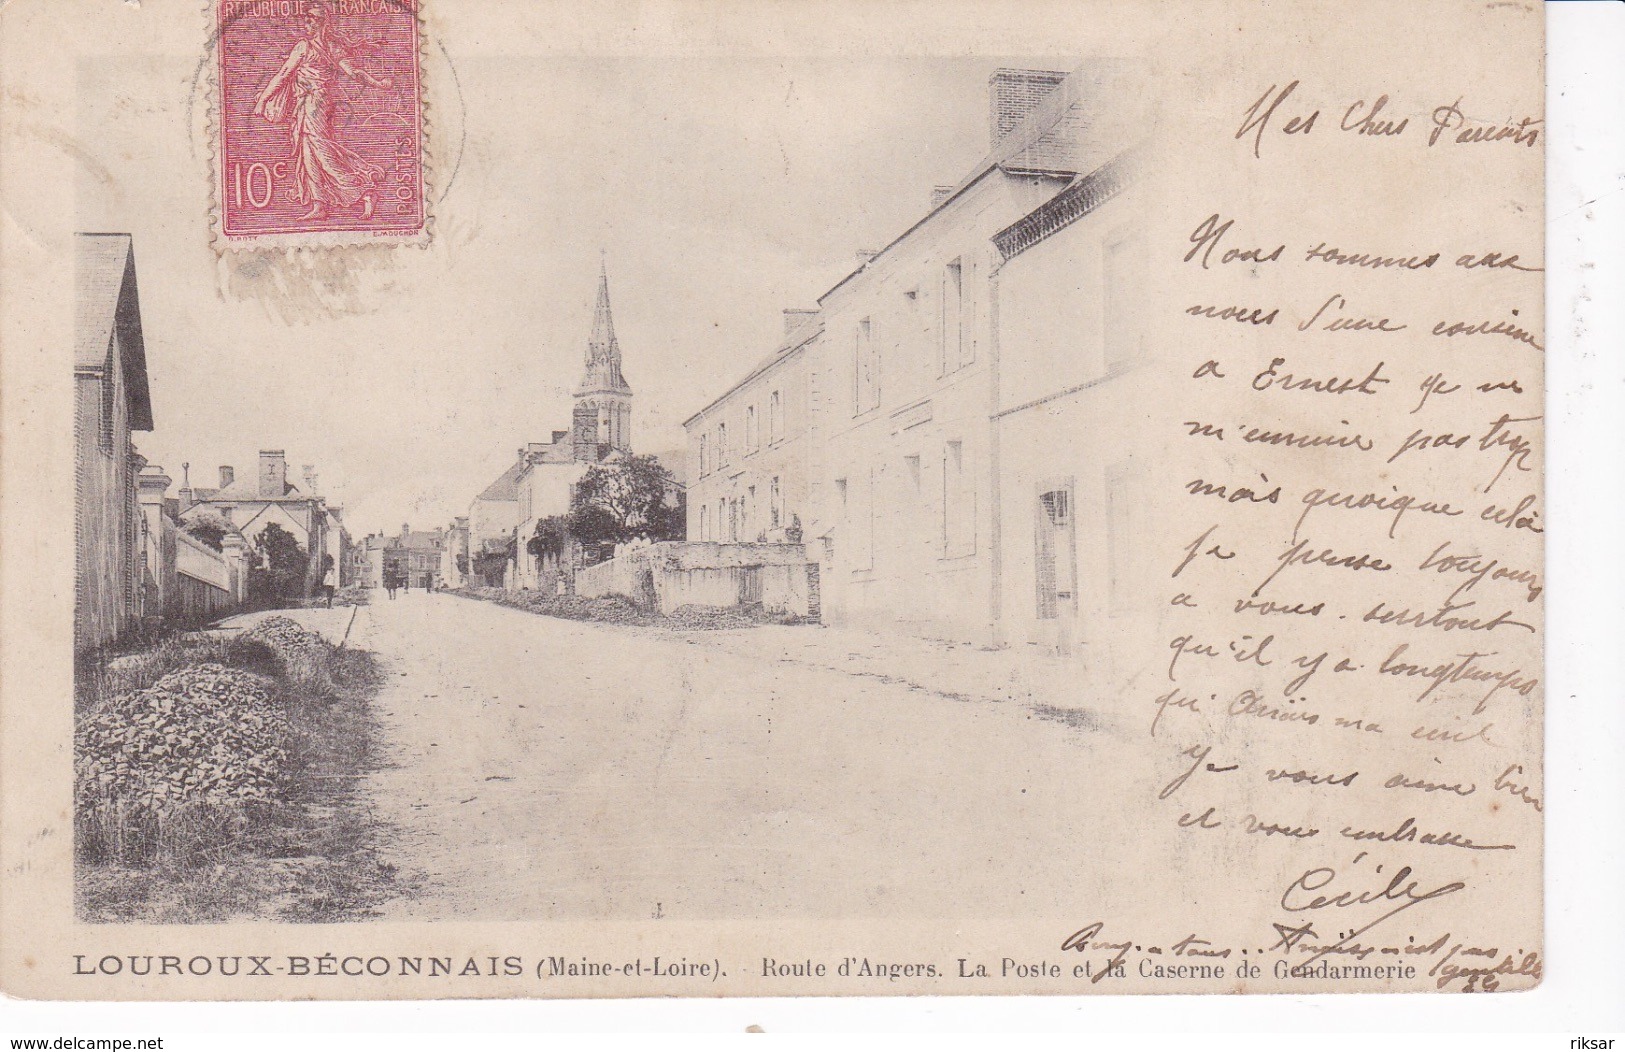 REPUBLIQUE FRANCAISE
10c
POSTES
O. ROTY
E. MOUCHON
Mes Chers Parents
Nous sommes
nous d'une cousine
a Ernest Je ne
m'ennuie pas trop
mais quoique cela
je pense toujours
a vous. surtout
qu'il y a longtemps
qu'
Je vous aime bien
et vous embrasse
Cécile
a tous..
pas
gentille
LOUROUX-BÉCONNAIS (Maine-et-Loire). - Route d'Angers. La Poste et la Caserne de Gendarmerie
www.delcampe.net
riksar